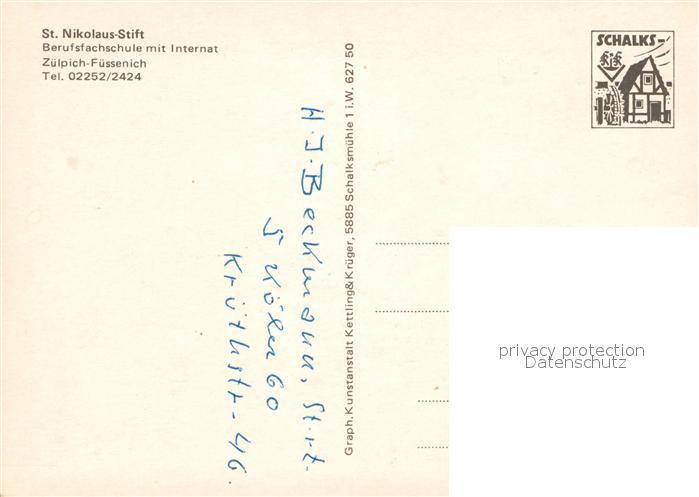 St. Nikolaus-Stift
Berufsfachschule mit Internat
Zülpich-Füssenich
Tel. 02252/2424
SCHALKS-
Graph. Kunstanstalt Kettling & Krüger, 5885 Schalksmühle 1 i.W. 627 50
H. J. Beckmann,
5 Köln 60
46.
privacy protection
Datenschutz